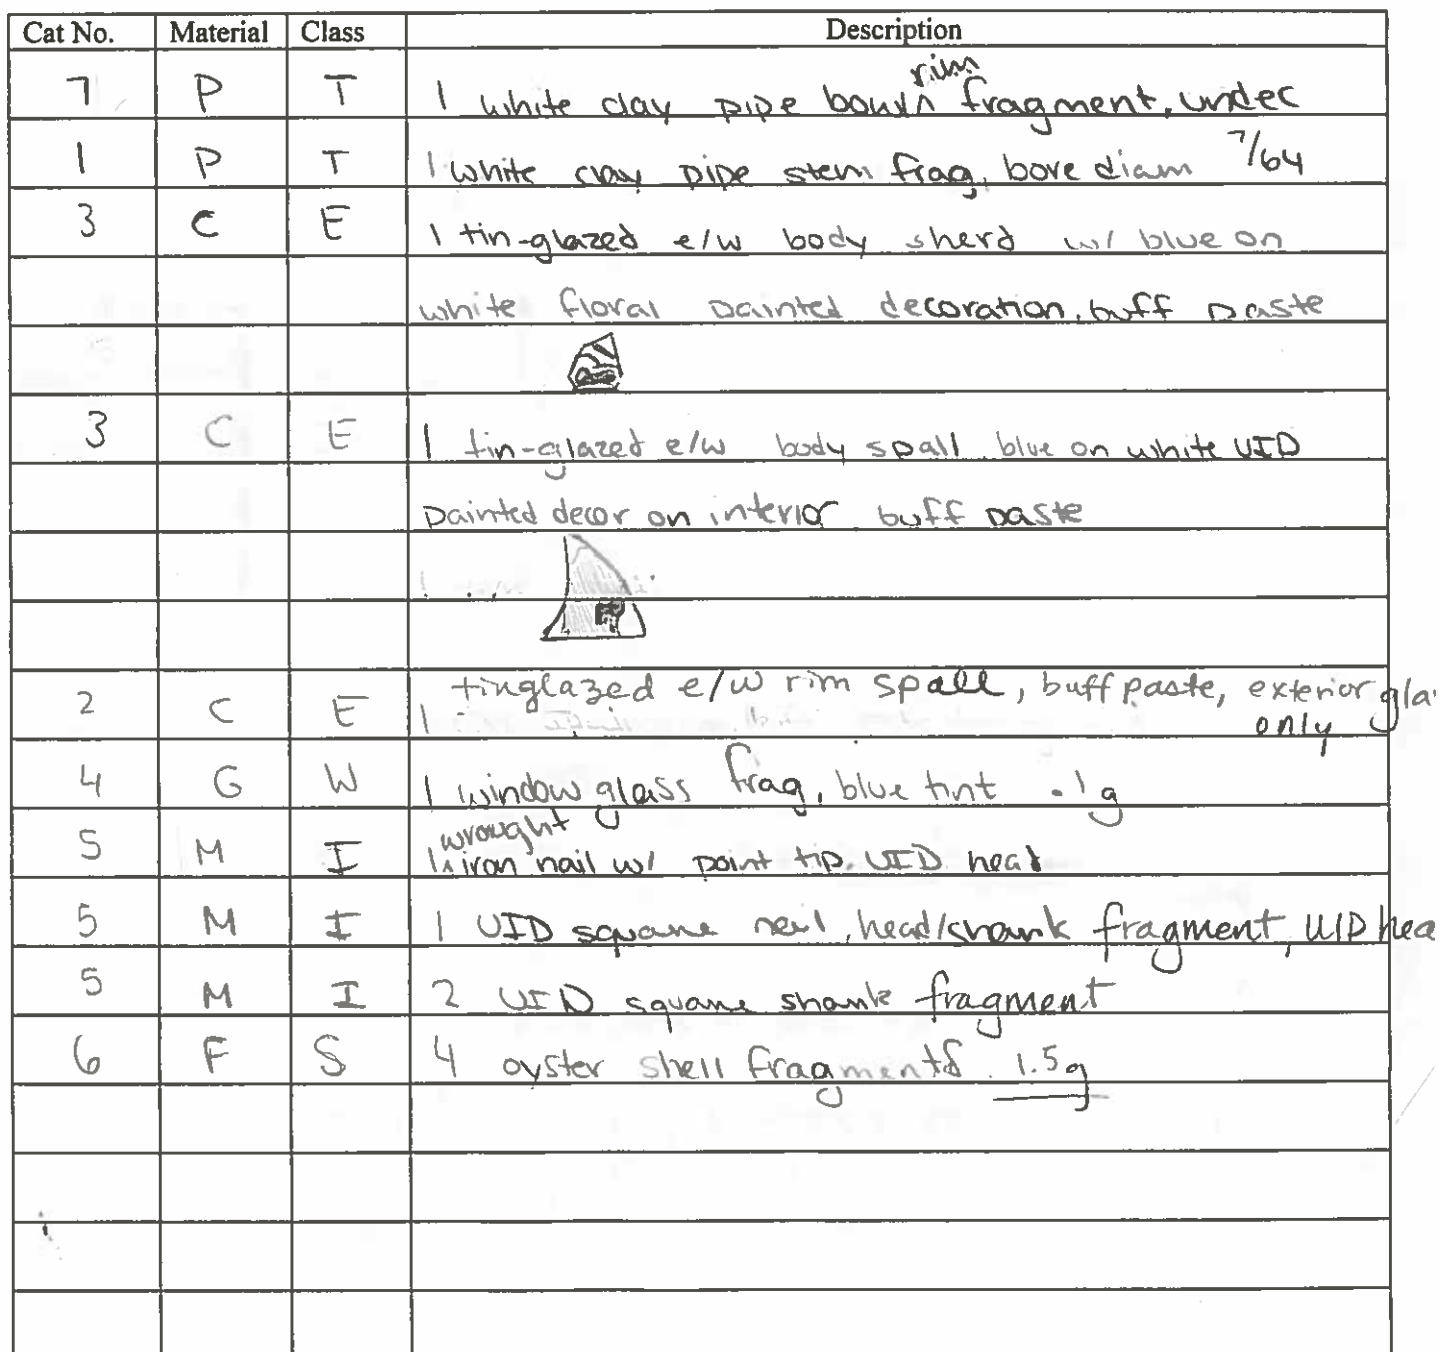 Cat No. Material Class Description
7 P T 1 white clay pipe bowl^ rim fragment, undec
1 P T 1 white clay pipe stem frag, bore diam 7/64
3 C E 1 tin-glazed e/w body sherd w/ blue on
white floral painted decoration, buff paste
3 C E 1 tin-glazed e/w body spall blue on white UID
painted decor on interior buff paste
2 C E 1 tinglazed e/w rim spall, buff paste, exterior gla
only
4 G W 1 window glass frag, blue tint .1g
5 M I 1 ^ wrought iron nail w/ point tip, UID head
5 M I 1 UID square nail, head/shank fragment, UID hea
5 M I 2 UID square shank fragment
6 F S 4 oyster shell fragments 1.5g